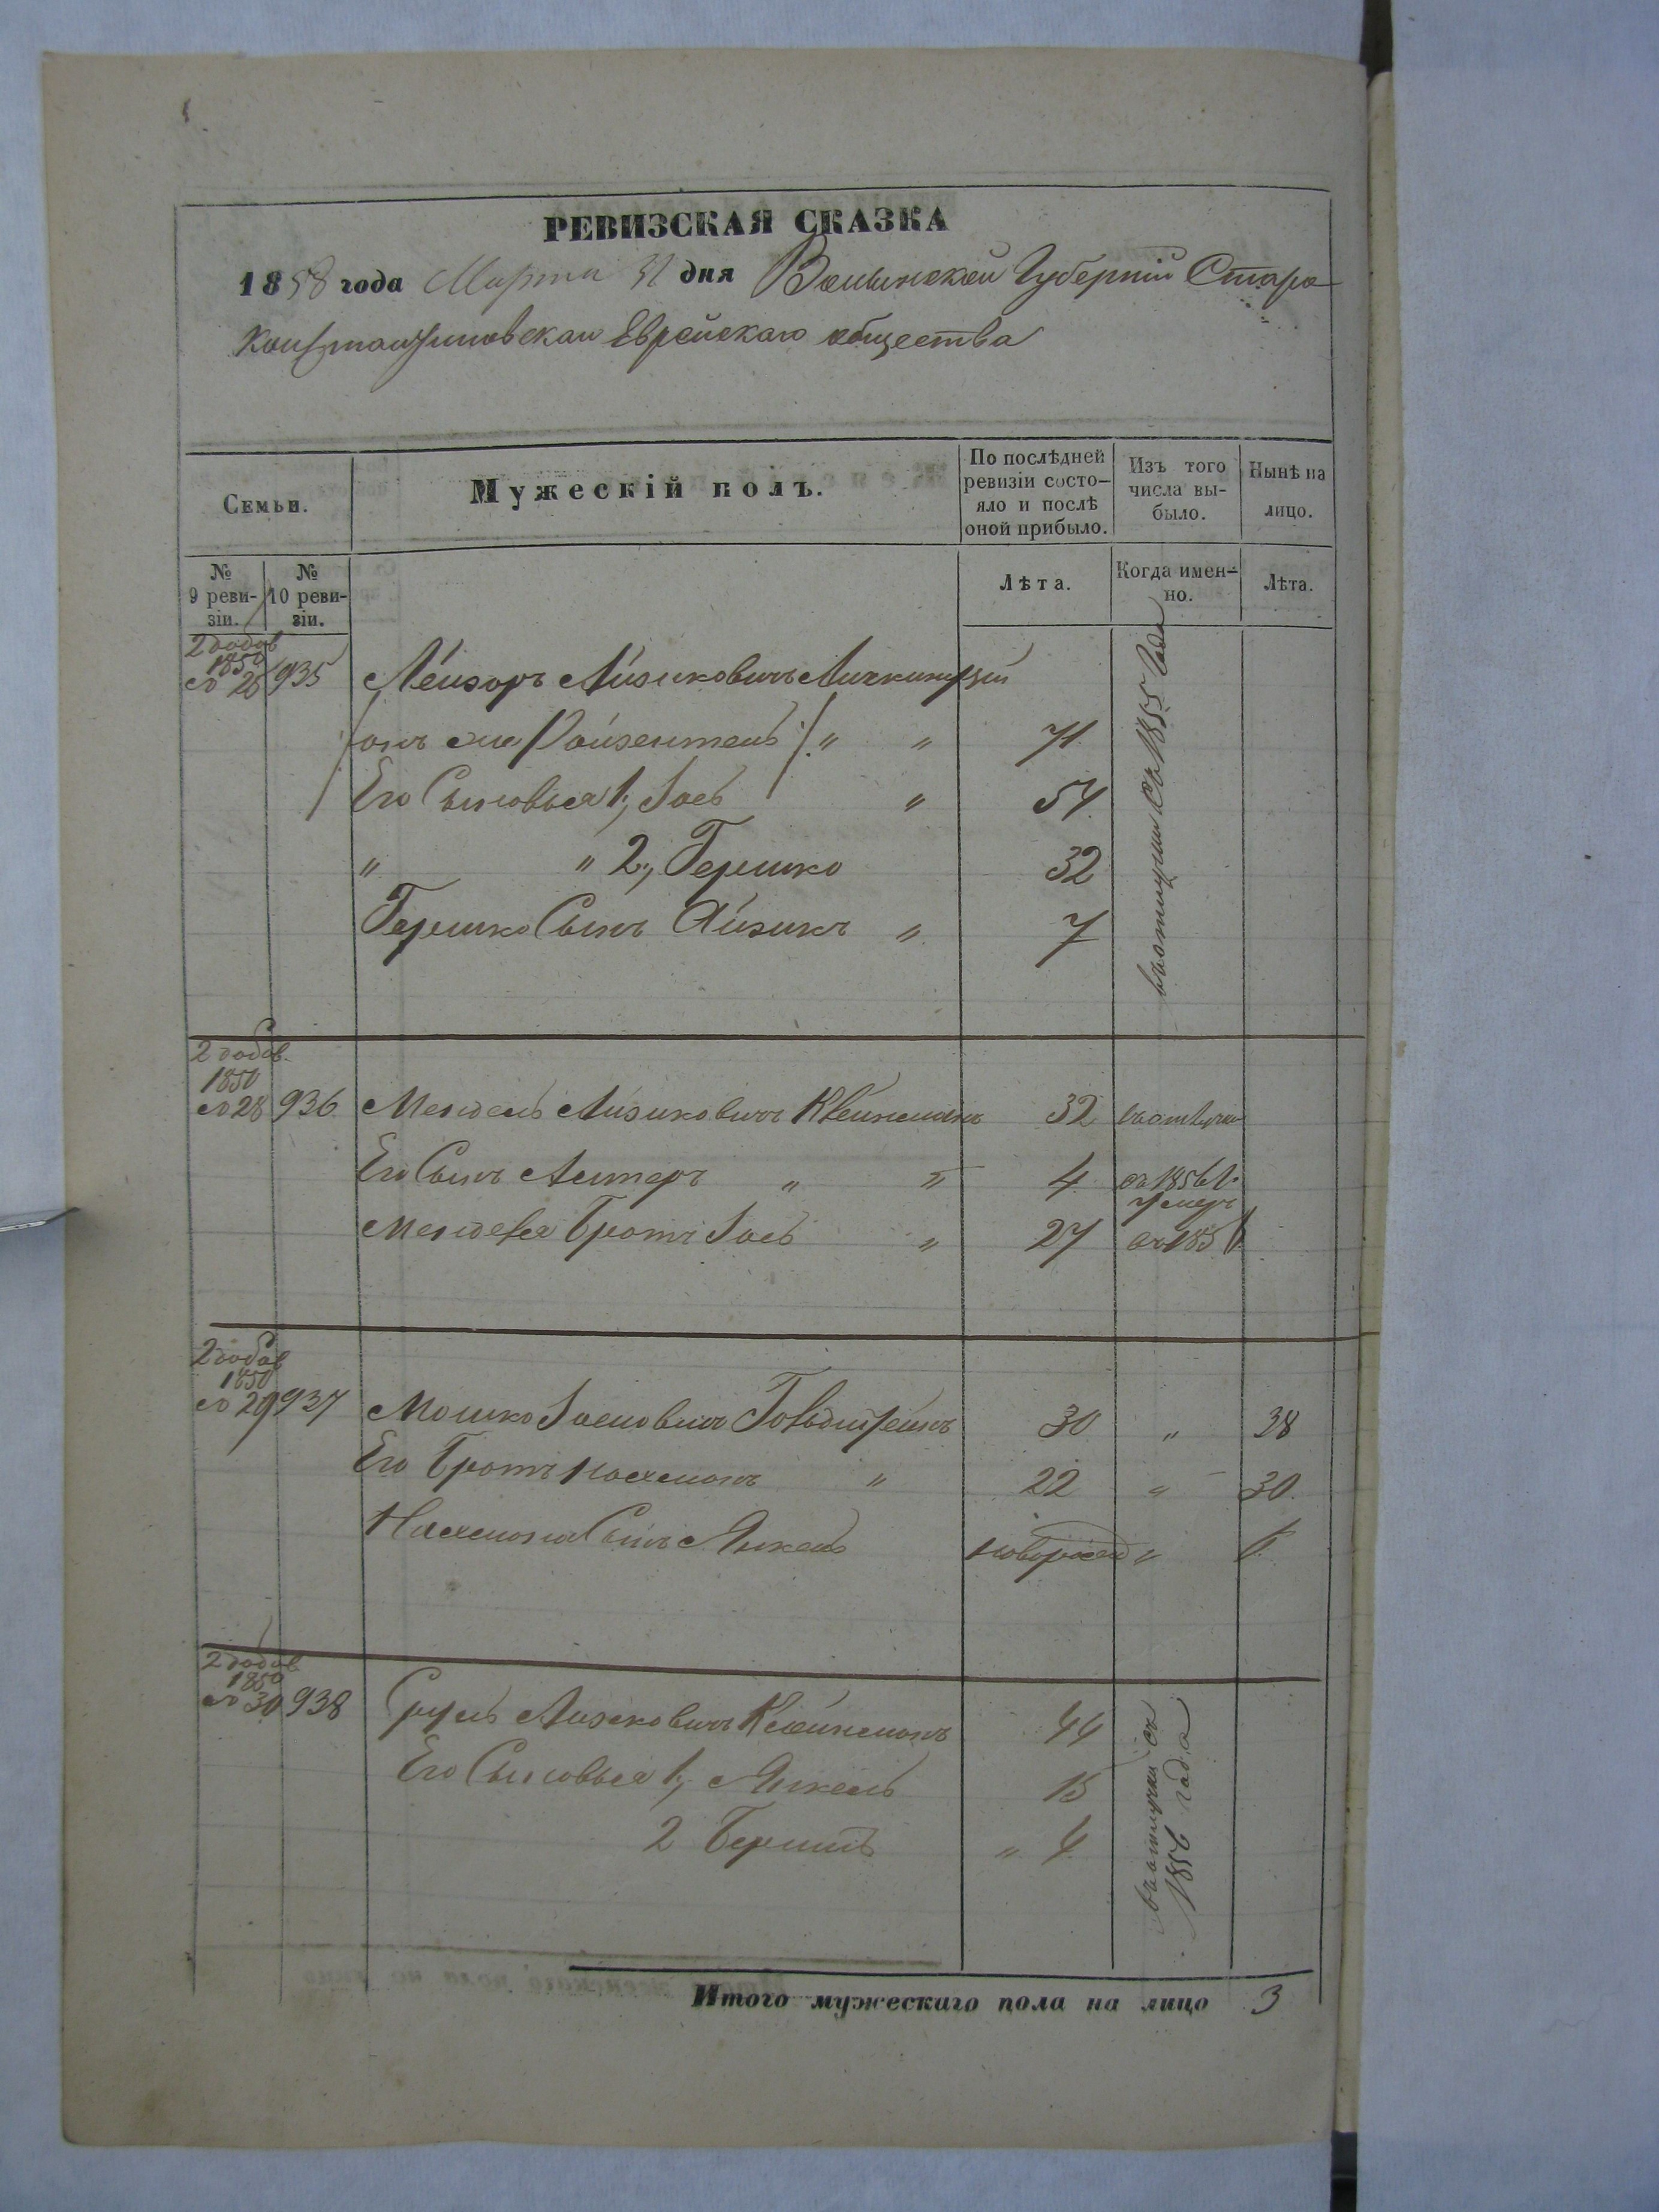 РЕВИЗСКАЯ СКАЗКА
1858 года Марта 31 дня Волынской Губерніи Старо
Константиновскаго Еврейскаго общества
Семьи.
Мужескій полъ.
По послѣдней ревизіи состо-
яло и послѣ
оной прибыло.
Изъ того
числа вы-
было.
Нынѣ на
лицо.
№
9 реви-
зіи.
№
10 реви-
зіи.
Лѣта.
Когда имен-
но.
Лѣта.
2 додав
1850
№ 26 935 Лейзоръ Айзиковичъ
онъ же Ройзентель " " 71
Его Сыновья 1, Іось " 54
" " 2, Гершко 32
Гершко Сынъ Айзикъ " 7
въ отлучки съ 1855 года
2 додав.
1850
№ 28 936 Мендель Айзиковичъ Клейнманъ 32 въ отлучки
Его Сынъ Алтеръ " " 4 съ 1856 г.
умеръ
Менделя Братъ Іось " 27 въ 185
2 додав
1850
№ 29 937 Мошко Іосиовичъ Гольдштейнъ 30 " 38
Его Братъ Нахманъ " 22 " 30.
Нахмана Сынъ Янкель новорожд "
2 додав
1850
№ 30 938 Сруль Айзиковичъ Клейнманъ 44
Его Сыновья 1, Янкель 15
2 Берко " 4
въ отлучки съ
1856 года
Итого мужескаго пола на лицо 3